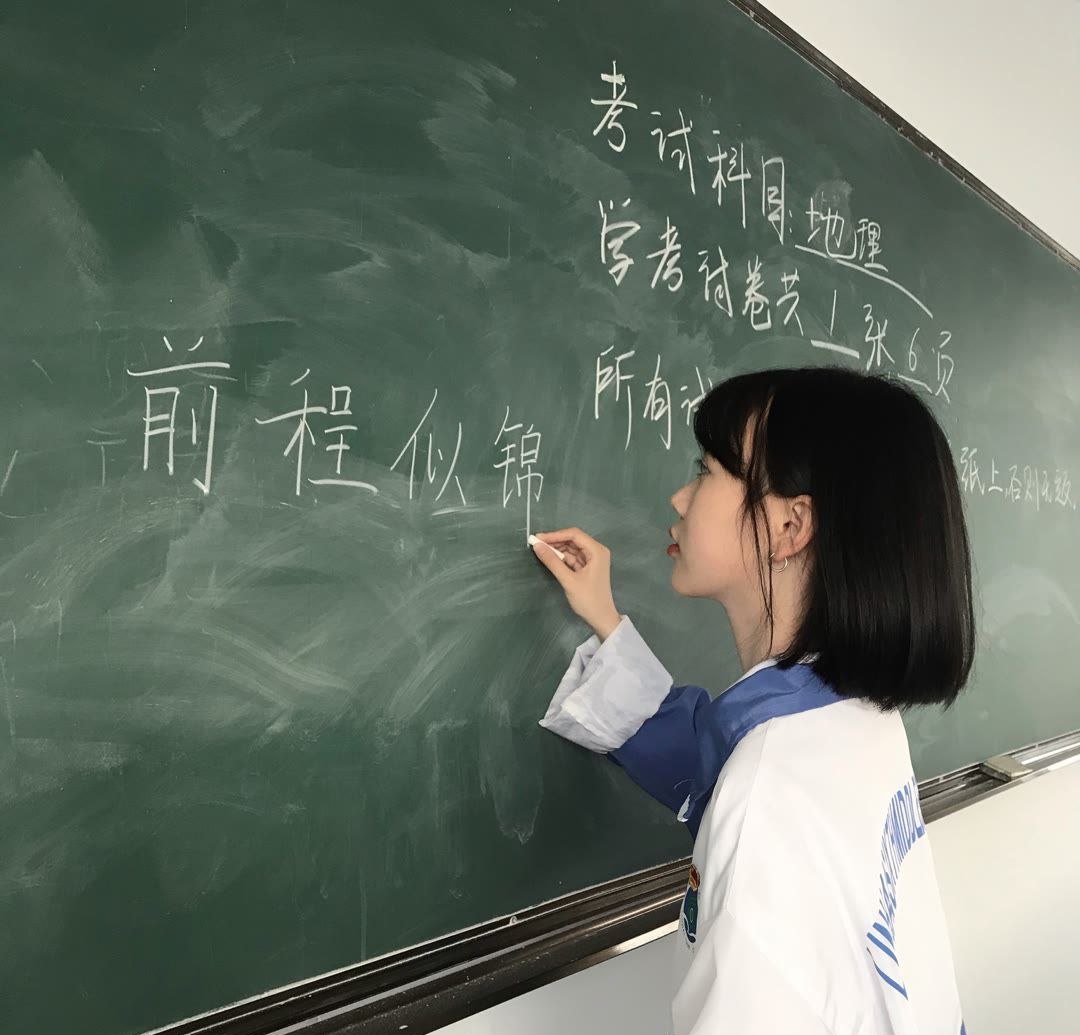 考试科目:地理
学考试卷共1张6页
所有试
纸上,否则无效.
前程似锦